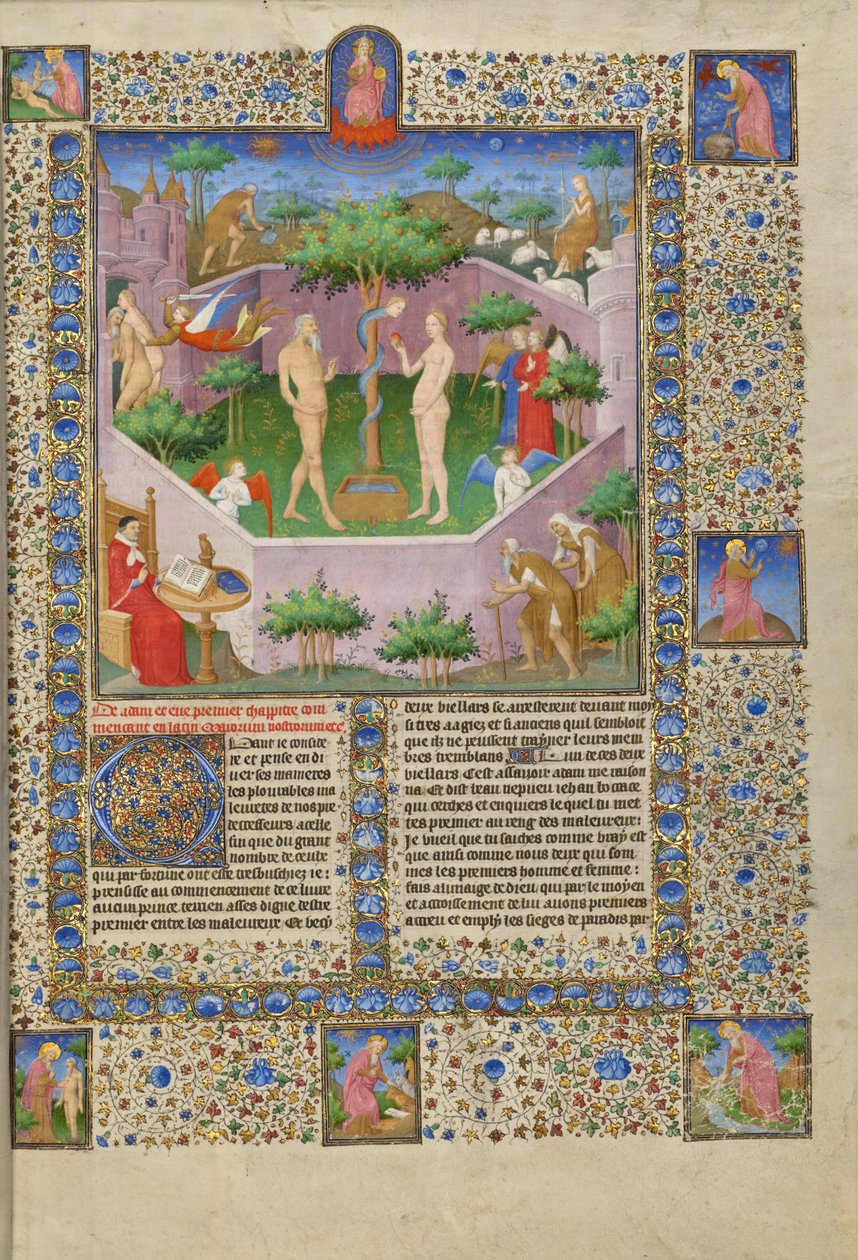 De adam et eue premier chappitre com
mencant en latin Maiorum nostrorum etc.
Quant ie conside
re et pense en di
uerses manieres
les plourables ma
leuretes de nos pre
decesseurs a celle
fin que du grant
nombre de ceulx
qui par fortune ont esse tresbuschiez ie:
prensisse au commencement de ce liure
aucun prince terrien asses digne destre
premier entre les maleureux. Et vecy
deux viellars se arresterent deuant moy
si tres aagiez et si anciens quil sembloit
que ilz ne peussent trayner leurs mem
bres tremblans. Lun de ces deux
viellars Cest assauoir adam me raison
na. Et dist beau nepueu iehan bocace
qui cerches et enquiers le quel tu met
tes premier au reng des maleureux:
Je vueil que tu saiches comme vray est
que ainsi comme nous deux qui som
mes les premiers homme et femme:
fais a limaige de dieu. qui par le moyen
et accroissement de lui auons premiers
acreu et emply les sieges de paradis par